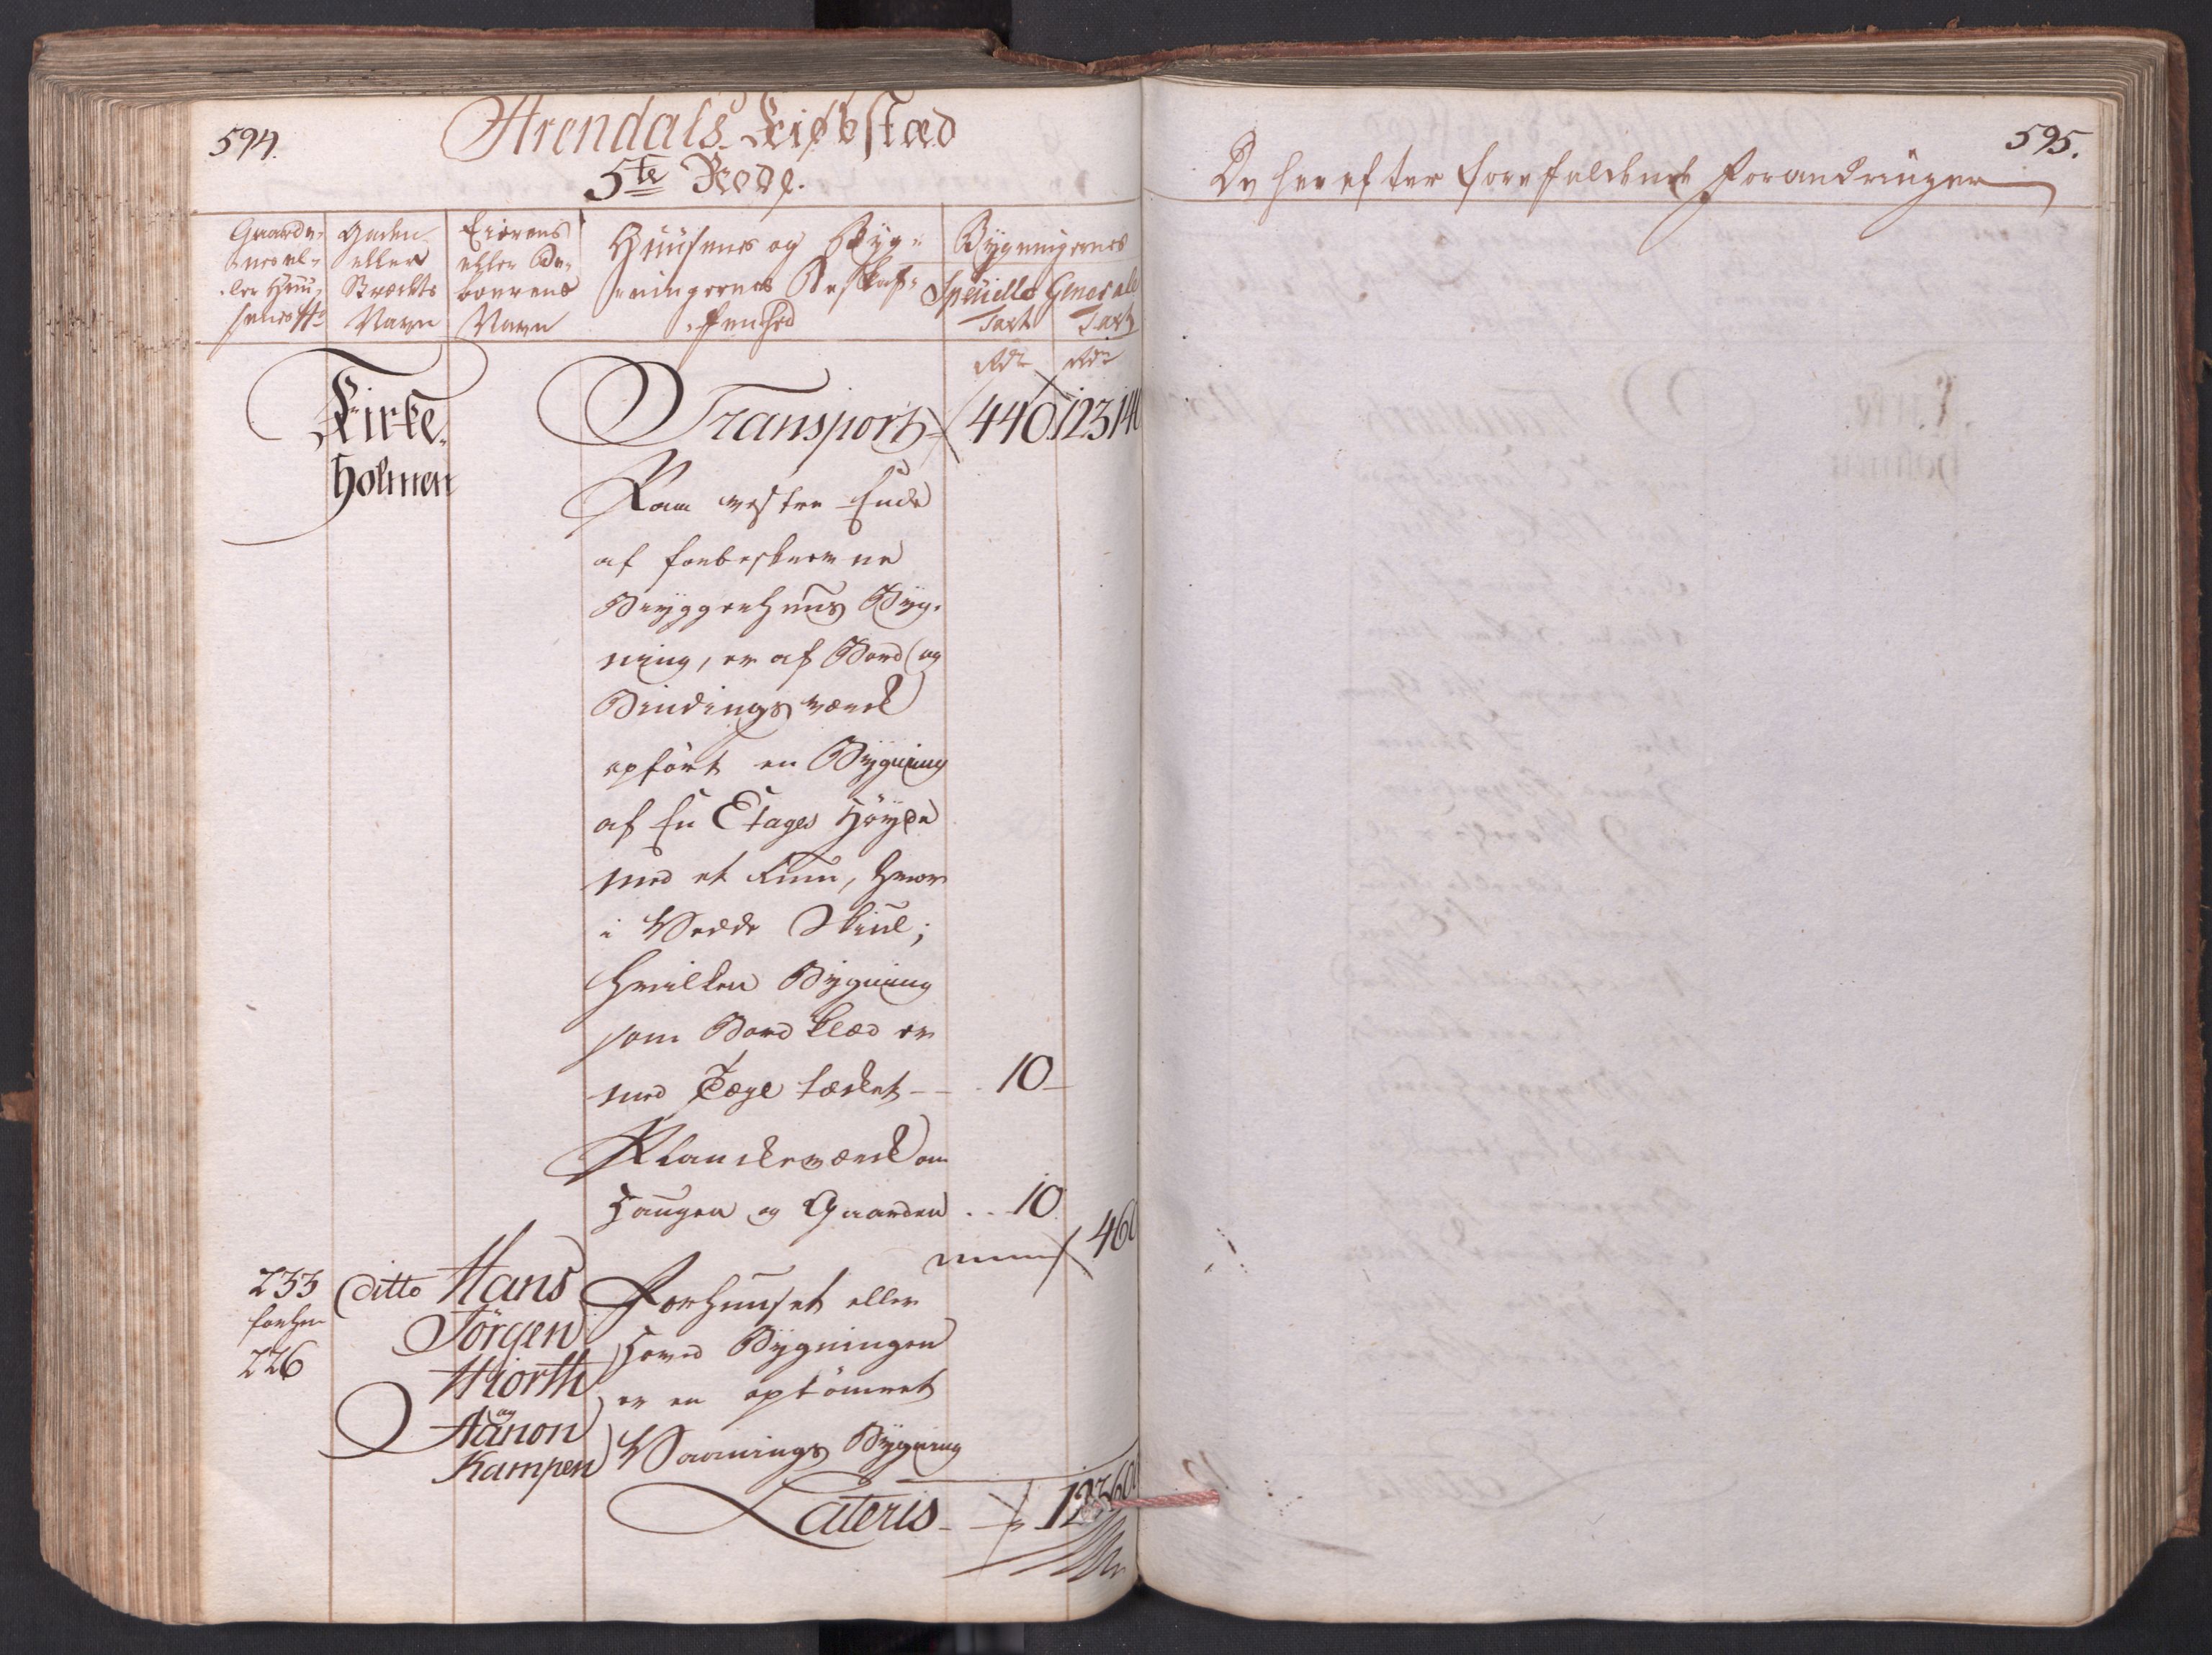 594.
Arendals Kiøbstæd
5te Rode.
Gaarde-
nes el-
ler Huu-
senes No
Gaden
eller
Strækets
Navn
Eierens
eller Be-
boerens
Navn
Huusenes og Byg-
ningernes Beskaf-
fenhed
Bygningernes
Specielle Taxt
Generale Taxt
Rdr Rdr
Kirke
holmen
Transport 440 123140
Paa vestre Ende
af forbeskrevne
Bryggerhuus Byg-
ning, er af Bord og
Bindingsværck
opført en Bygning
af En Etages Høyde
med et Rum, hvor
i Vedde Skiul;
hvilken Bygning
som Bord klæd er
med Tægl tæcket - - 10 -
Planckeværck om
Haugen og Gaarden .. 10
460
233
forhen
226
ditto
Hans
Jörgen
Hiorth
og
Aanon
Kampen
Forhuuset eller
Hoved Bygningen
er en optömret
Vaanings Bygning
Lateris - 123600
595.
De herefter forefaldende Forandringer